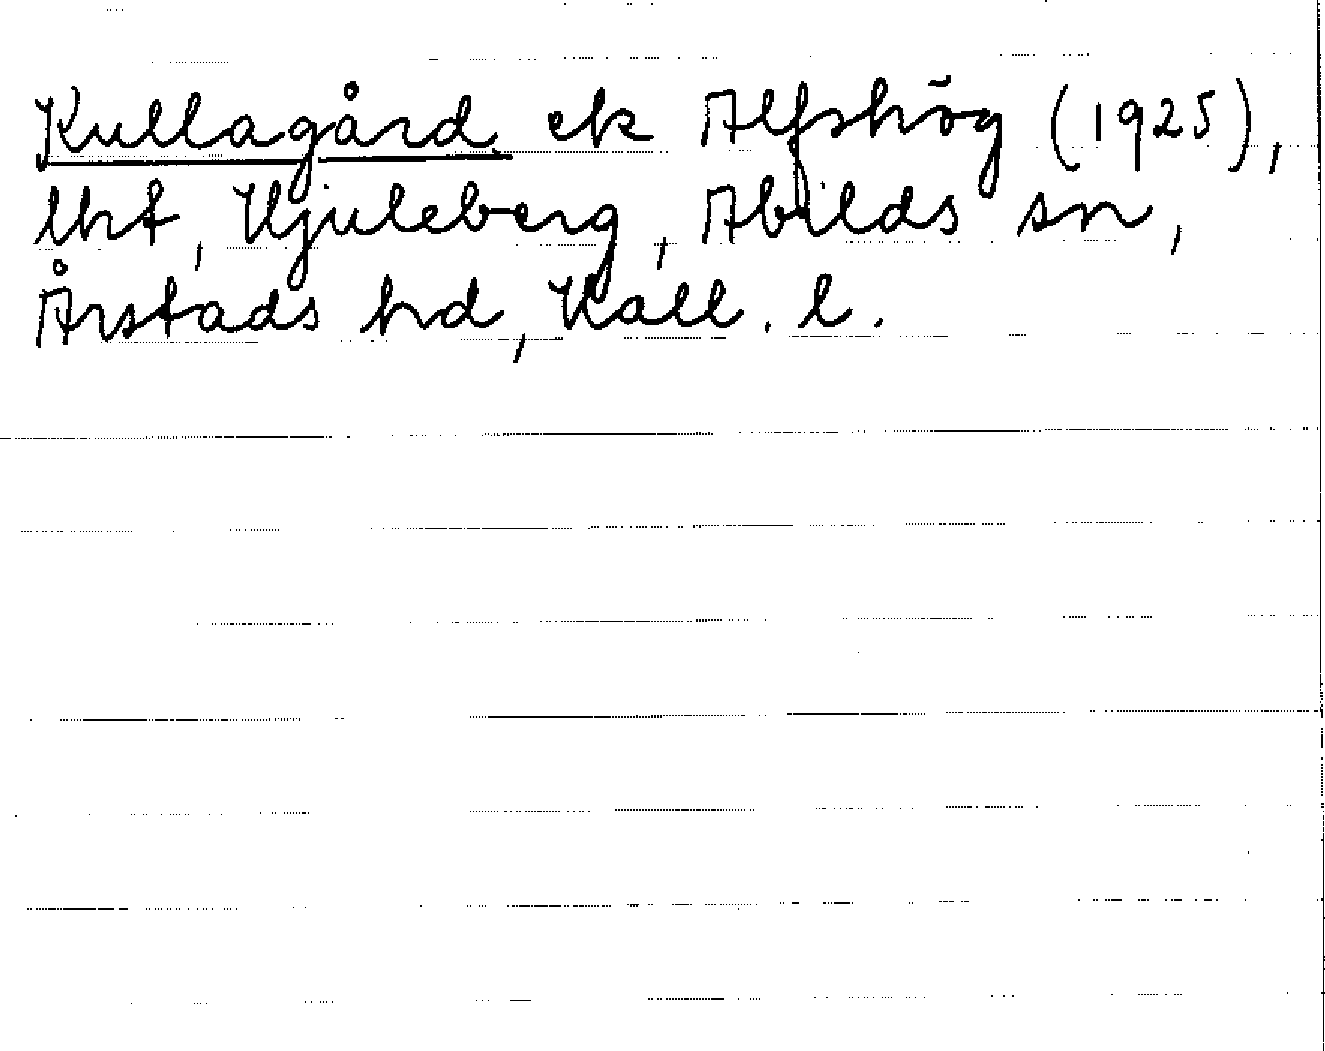 Kullagård ek Alfshög (1925),
lht, Hjuleberg, Abilds sn,
Årstads hd, Hall. l.